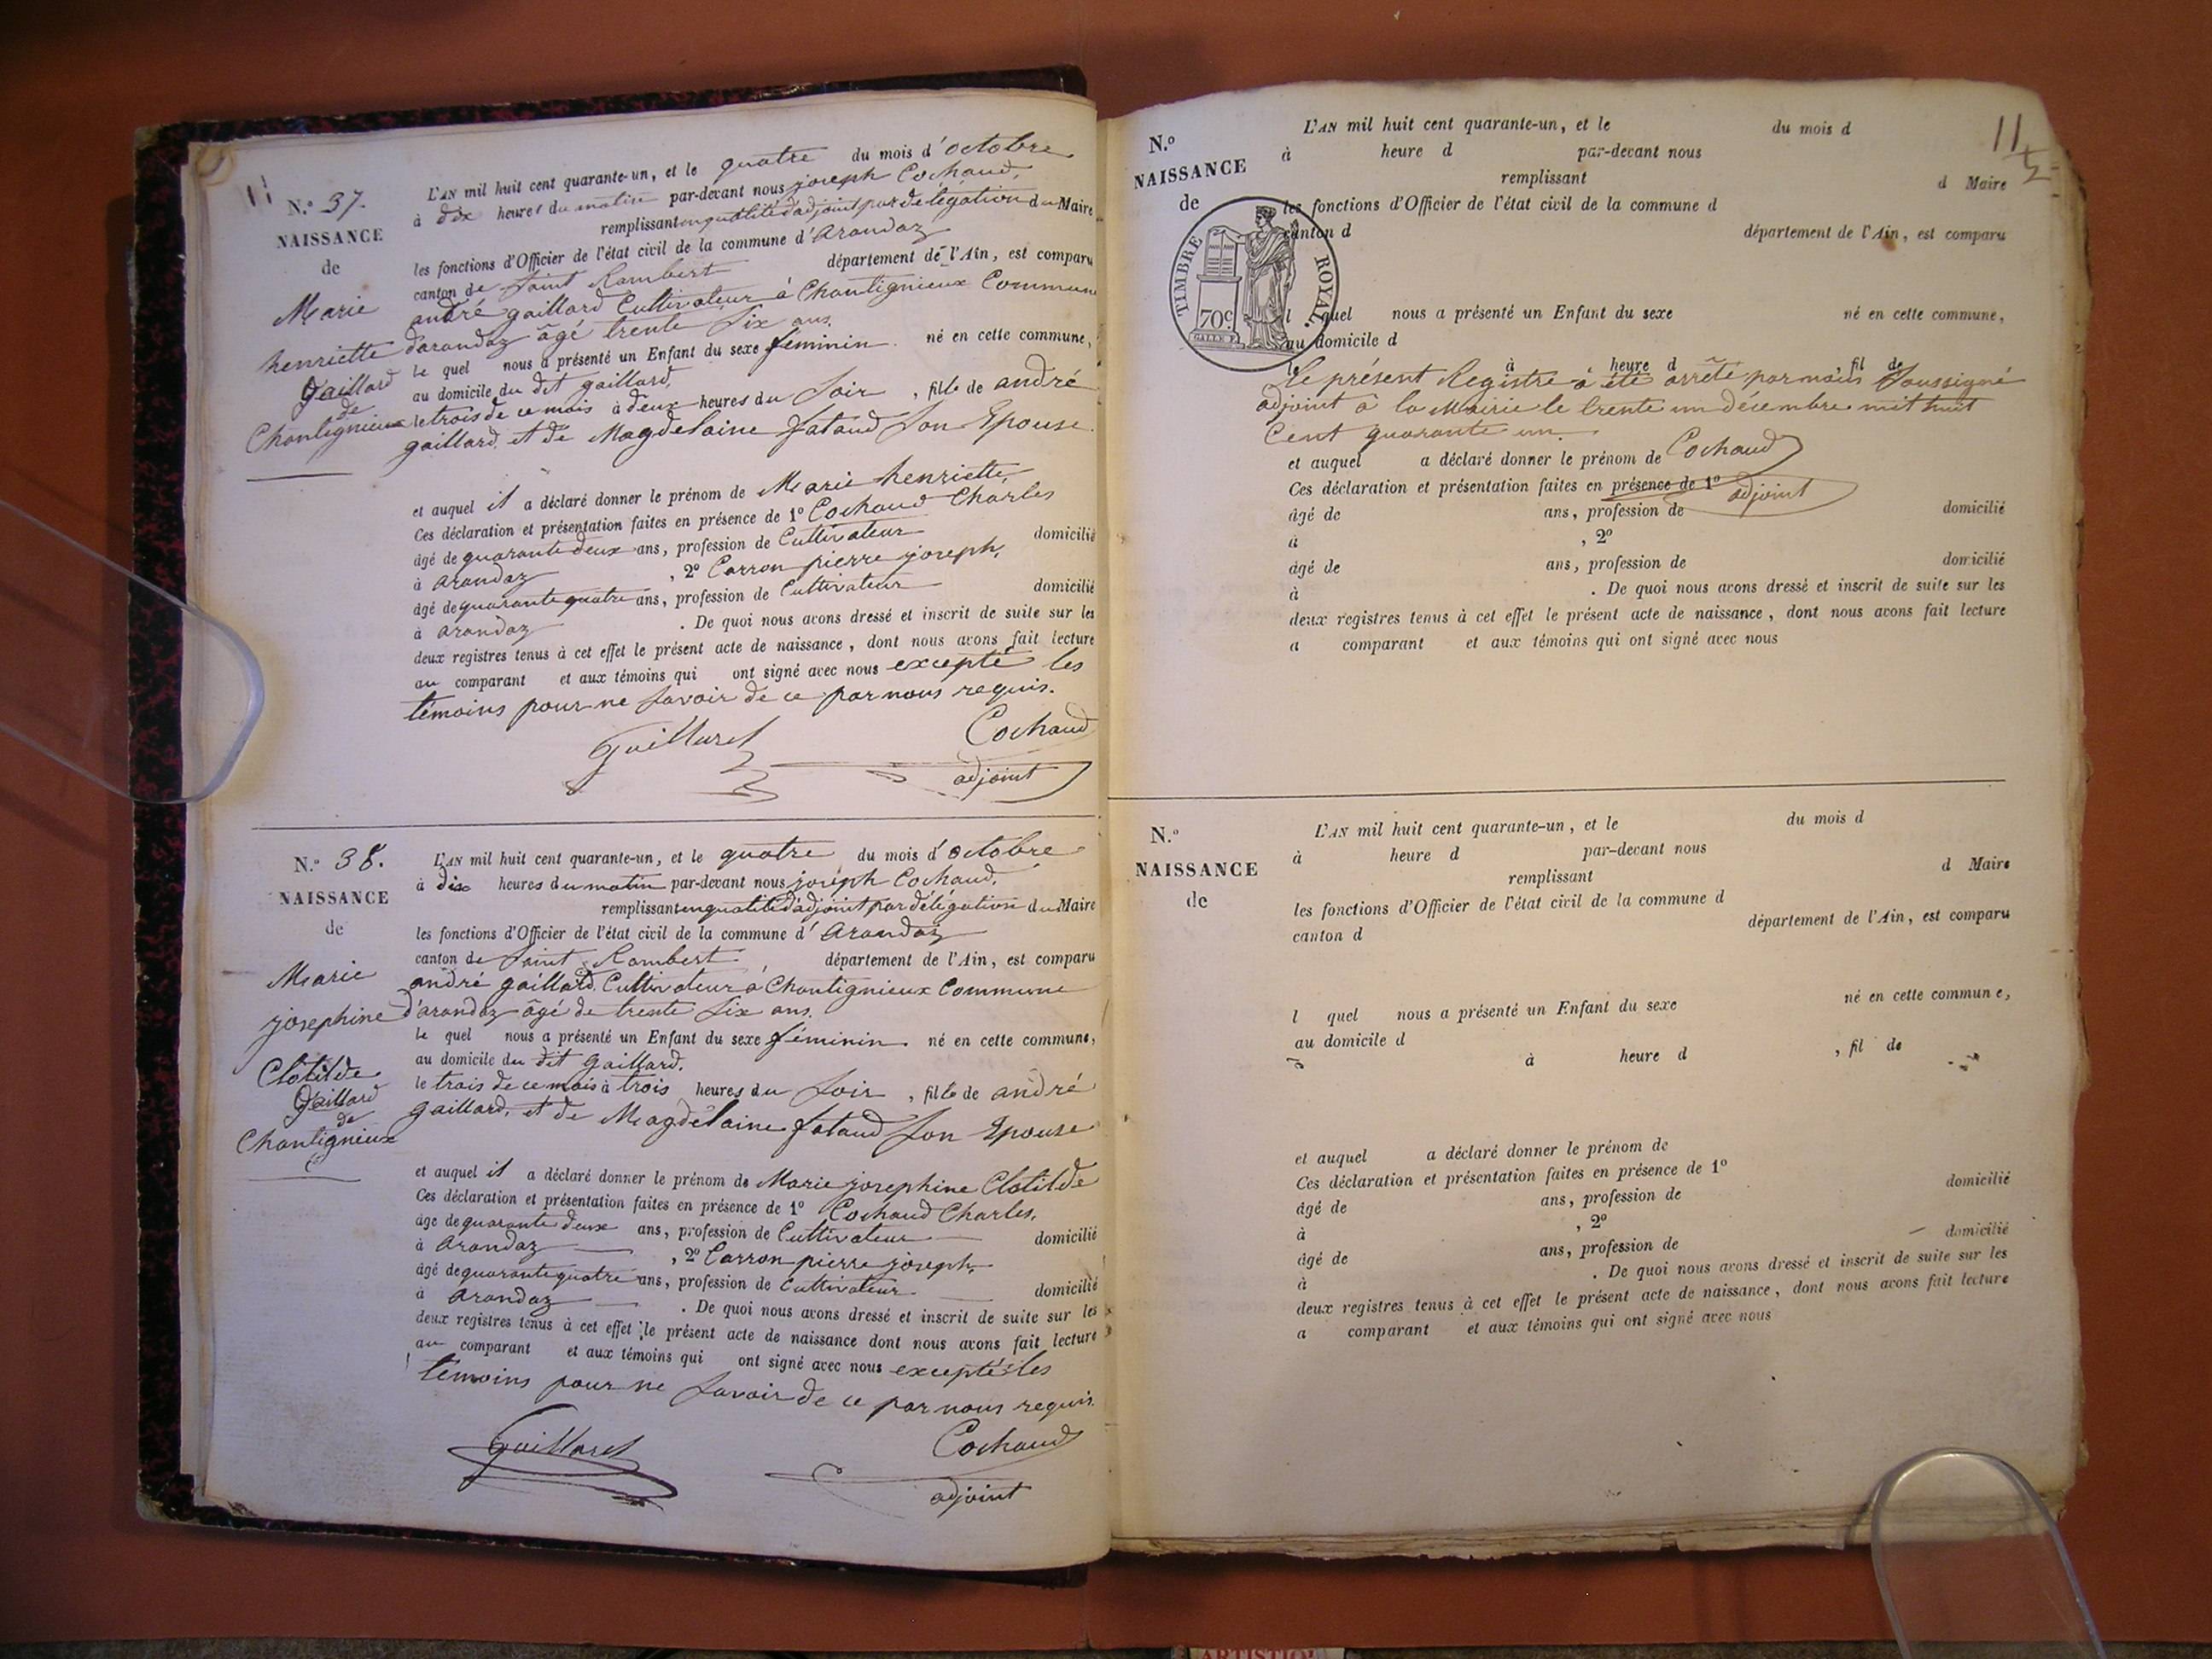 11
N.° 37.
NAISSANCE
de
Marie
henriette
Gaillard
de
Chantignieux
L'AN mil huit cent quarante-un, et le quatre du mois d'octobre
à dix heures du matin par-devant nous joseph Cochaud,
remplissant en qualité d'adjoint par délégation du Maire
les fonctions d'Officier de l'état civil de la commune d'arandaz
canton de Saint Rambert département de l'Ain, est comparu
andré gaillard Cultivateur à Chantignieux Commune
d'arandaz âgé trente six ans.
le quel nous a présenté un Enfant du sexe féminin né en cette commune,
au domicile du dit gaillard,
le trois de ce mois à deux heures du soir, fille de andré
gaillard, et de Magdelaine fataud son Epouse.
et auquel il a déclaré donner le prénom de Marie henriette,
Ces déclaration et présentation faites en présence de 1° Cochaud Charles
âgé de quarante deux ans, profession de Cultivateur domicilié
à arandaz, 2° Carron pierre joseph,
âgé de quarante quatre ans, profession de Cultivateur domicilié
à arandaz. De quoi nous avons dressé et inscrit de suite sur les
deux registres tenus à cet effet le présent acte de naissance, dont nous avons fait lecture
au comparant et aux témoins qui ont signé avec nous excepté les
témoins pour ne savoir de ce par nous requis.
Gaillard Cochaud
adjoint
N.° 38.
NAISSANCE
de
Marie
josephine
Clotilde
Gaillard
de
Chantignieux
L'AN mil huit cent quarante-un, et le quatre du mois d'octobre
à dix heures du matin par-devant nous joseph Cochaud,
remplissant en qualité d'adjoint par délégation du Maire
les fonctions d'Officier de l'état civil de la commune d'arandaz
canton de Saint Rambert département de l'Ain, est comparu
andré gaillard Cultivateur à Chantignieux Commune
d'arandaz âgé de trente six ans.
le quel nous a présenté un Enfant du sexe féminin. né en cette commune,
au domicile du dit gaillard.
le trois de ce mois à trois heures du soir, fille de andré
gaillard, et de Magdelaine fataud son Epouse
et auquel il a déclaré donner le prénom de Marie josephine Clotilde
Ces déclaration et présentation faites en présence de 1° Cochaud Charles,
âgé de quarante deux ans, profession de Cultivateur domicilié
à arandaz, 2° Carron pierre joseph,
âgé de quarante quatre ans, profession de Cultivateur domicilié
à arandaz. De quoi nous avons dressé et inscrit de suite sur les
deux registres tenus à cet effet le présent acte de naissance dont nous avons fait lecture
au comparant et aux témoins qui ont signé avec nous excepté les
témoins pour ne savoir de ce par nous requis.
Gaillard Cochaud
adjoint
11
N.°
NAISSANCE
de
TIMBRE ROYAL.
70c
L'AN mil huit cent quarante-un, et le du mois d
à heure d par-devant nous
remplissant d Maire
les fonctions d'Officier de l'état civil de la commune d
canton d département de l'Ain, est comparu
l quel nous a présenté un Enfant du sexe né en cette commune,
au domicile d
le à heure d , fil de
Le présent Registre a été arrêté par nous soussigné
adjoint à la Mairie le trente un décembre mil huit
Cent quarante un.
et auquel a déclaré donner le prénom de Cochaud
Ces déclaration et présentation faites en présence de 1° adjoint
âgé de ans, profession de domicilié
à , 2°
âgé de ans, profession de domicilié
à . De quoi nous avons dressé et inscrit de suite sur les
deux registres tenus à cet effet le présent acte de naissance, dont nous avons fait lecture
a comparant et aux témoins qui ont signé avec nous
N.°
NAISSANCE
de
L'AN mil huit cent quarante-un, et le du mois d
à heure d par-devant nous
remplissant d Maire
les fonctions d'Officier de l'état civil de la commune d
canton d département de l'Ain, est comparu
l quel nous a présenté un Enfant du sexe né en cette commune,
au domicile d
à heure d , fil de
et auquel a déclaré donner le prénom de
Ces déclaration et présentation faites en présence de 1°
âgé de ans, profession de domicilié
à , 2°
âgé de ans, profession de domicilié
à . De quoi nous avons dressé et inscrit de suite sur les
deux registres tenus à cet effet le présent acte de naissance, dont nous avons fait lecture
a comparant et aux témoins qui ont signé avec nous